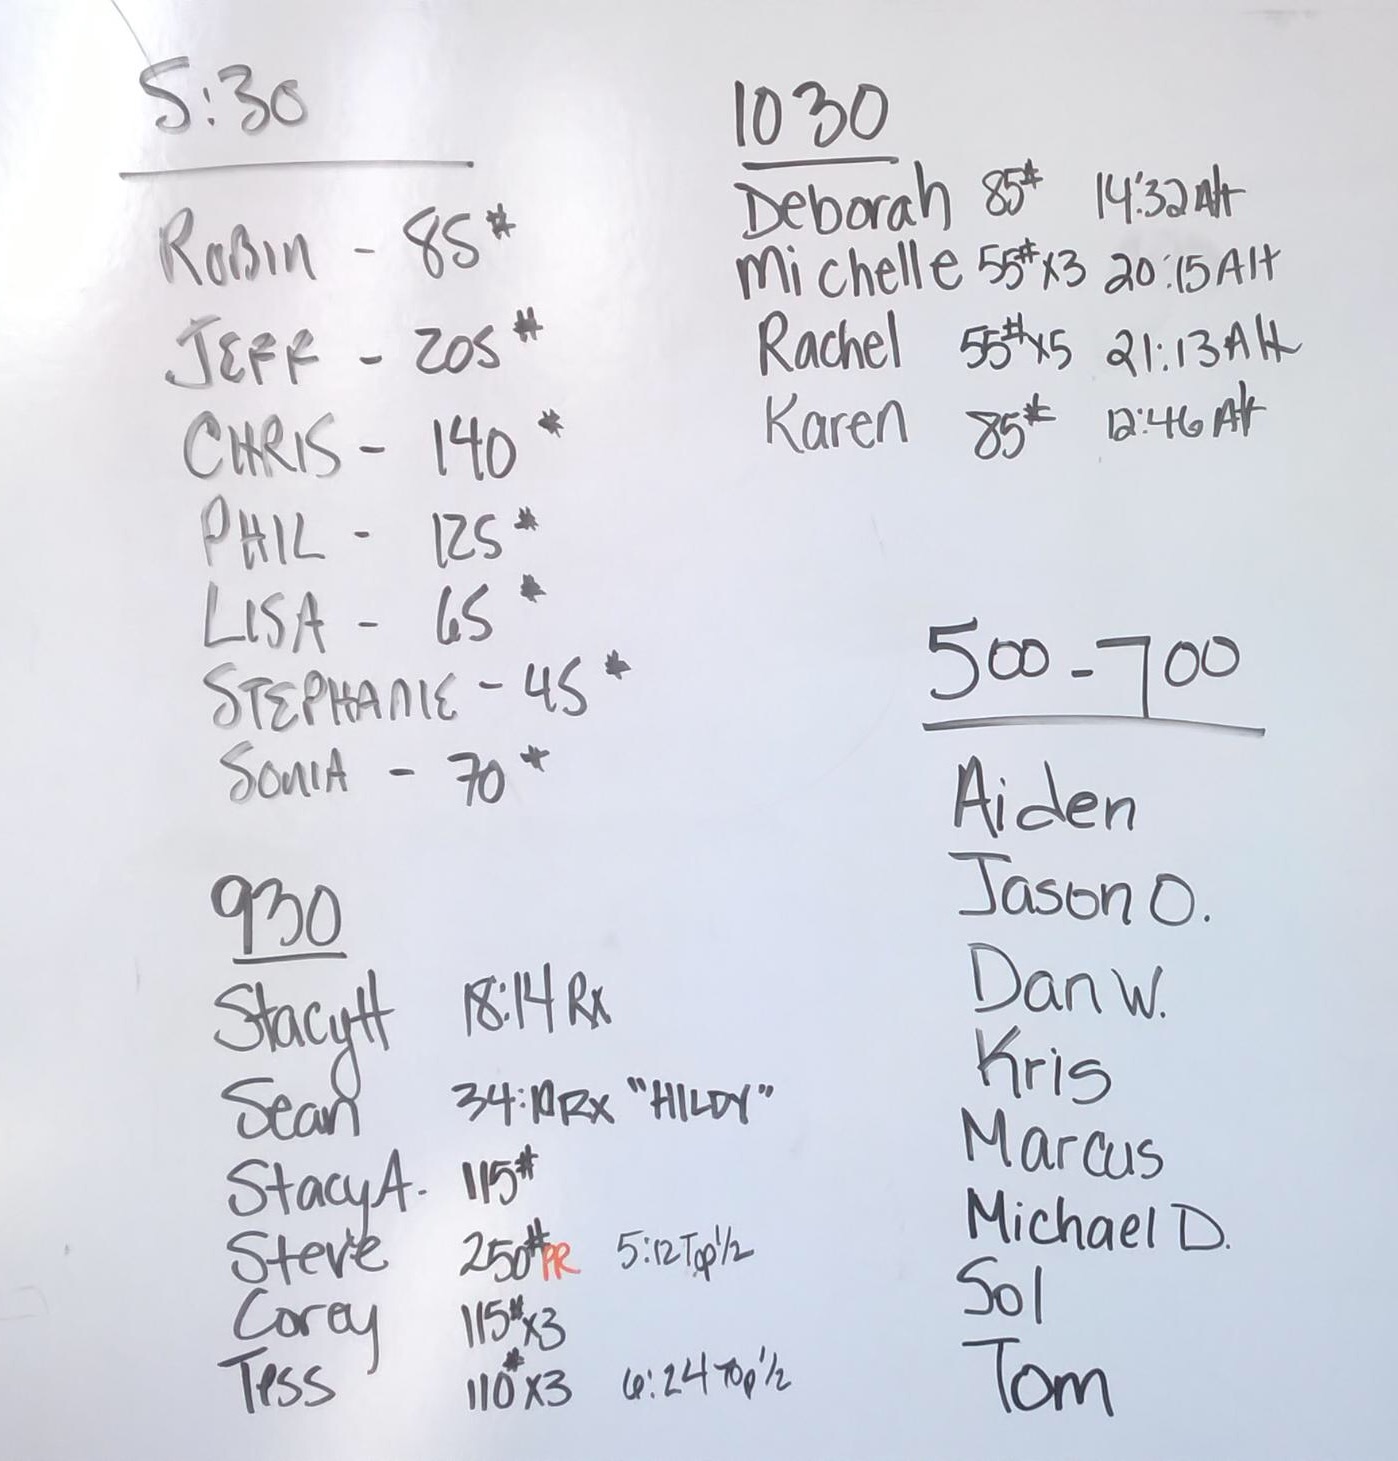 5:30
ROBIN - 85#
JEFF - 205#
CHRIS - 140#
PHIL - 125#
LISA - 65#
STEPHANIE - 45#
SONIA - 70#
930
Stacy H 18:14 Rx
Sean 34:10 RX "HILDY"
Stacy A. 115#
Steve 250# PR 5:12 Top 1/2
Corey 115# x3
Tess 110# x3 6:24 Top 1/2
1030
Deborah 85# 14:32 Alt
Michelle 55# x3 20:15 Alt
Rachel 55# x5 21:13 Alt
Karen 85# 12:46 Alt
500 - 700
Aiden
Jason O.
Dan W.
Kris
Marcus
Michael D.
Sol
Tom